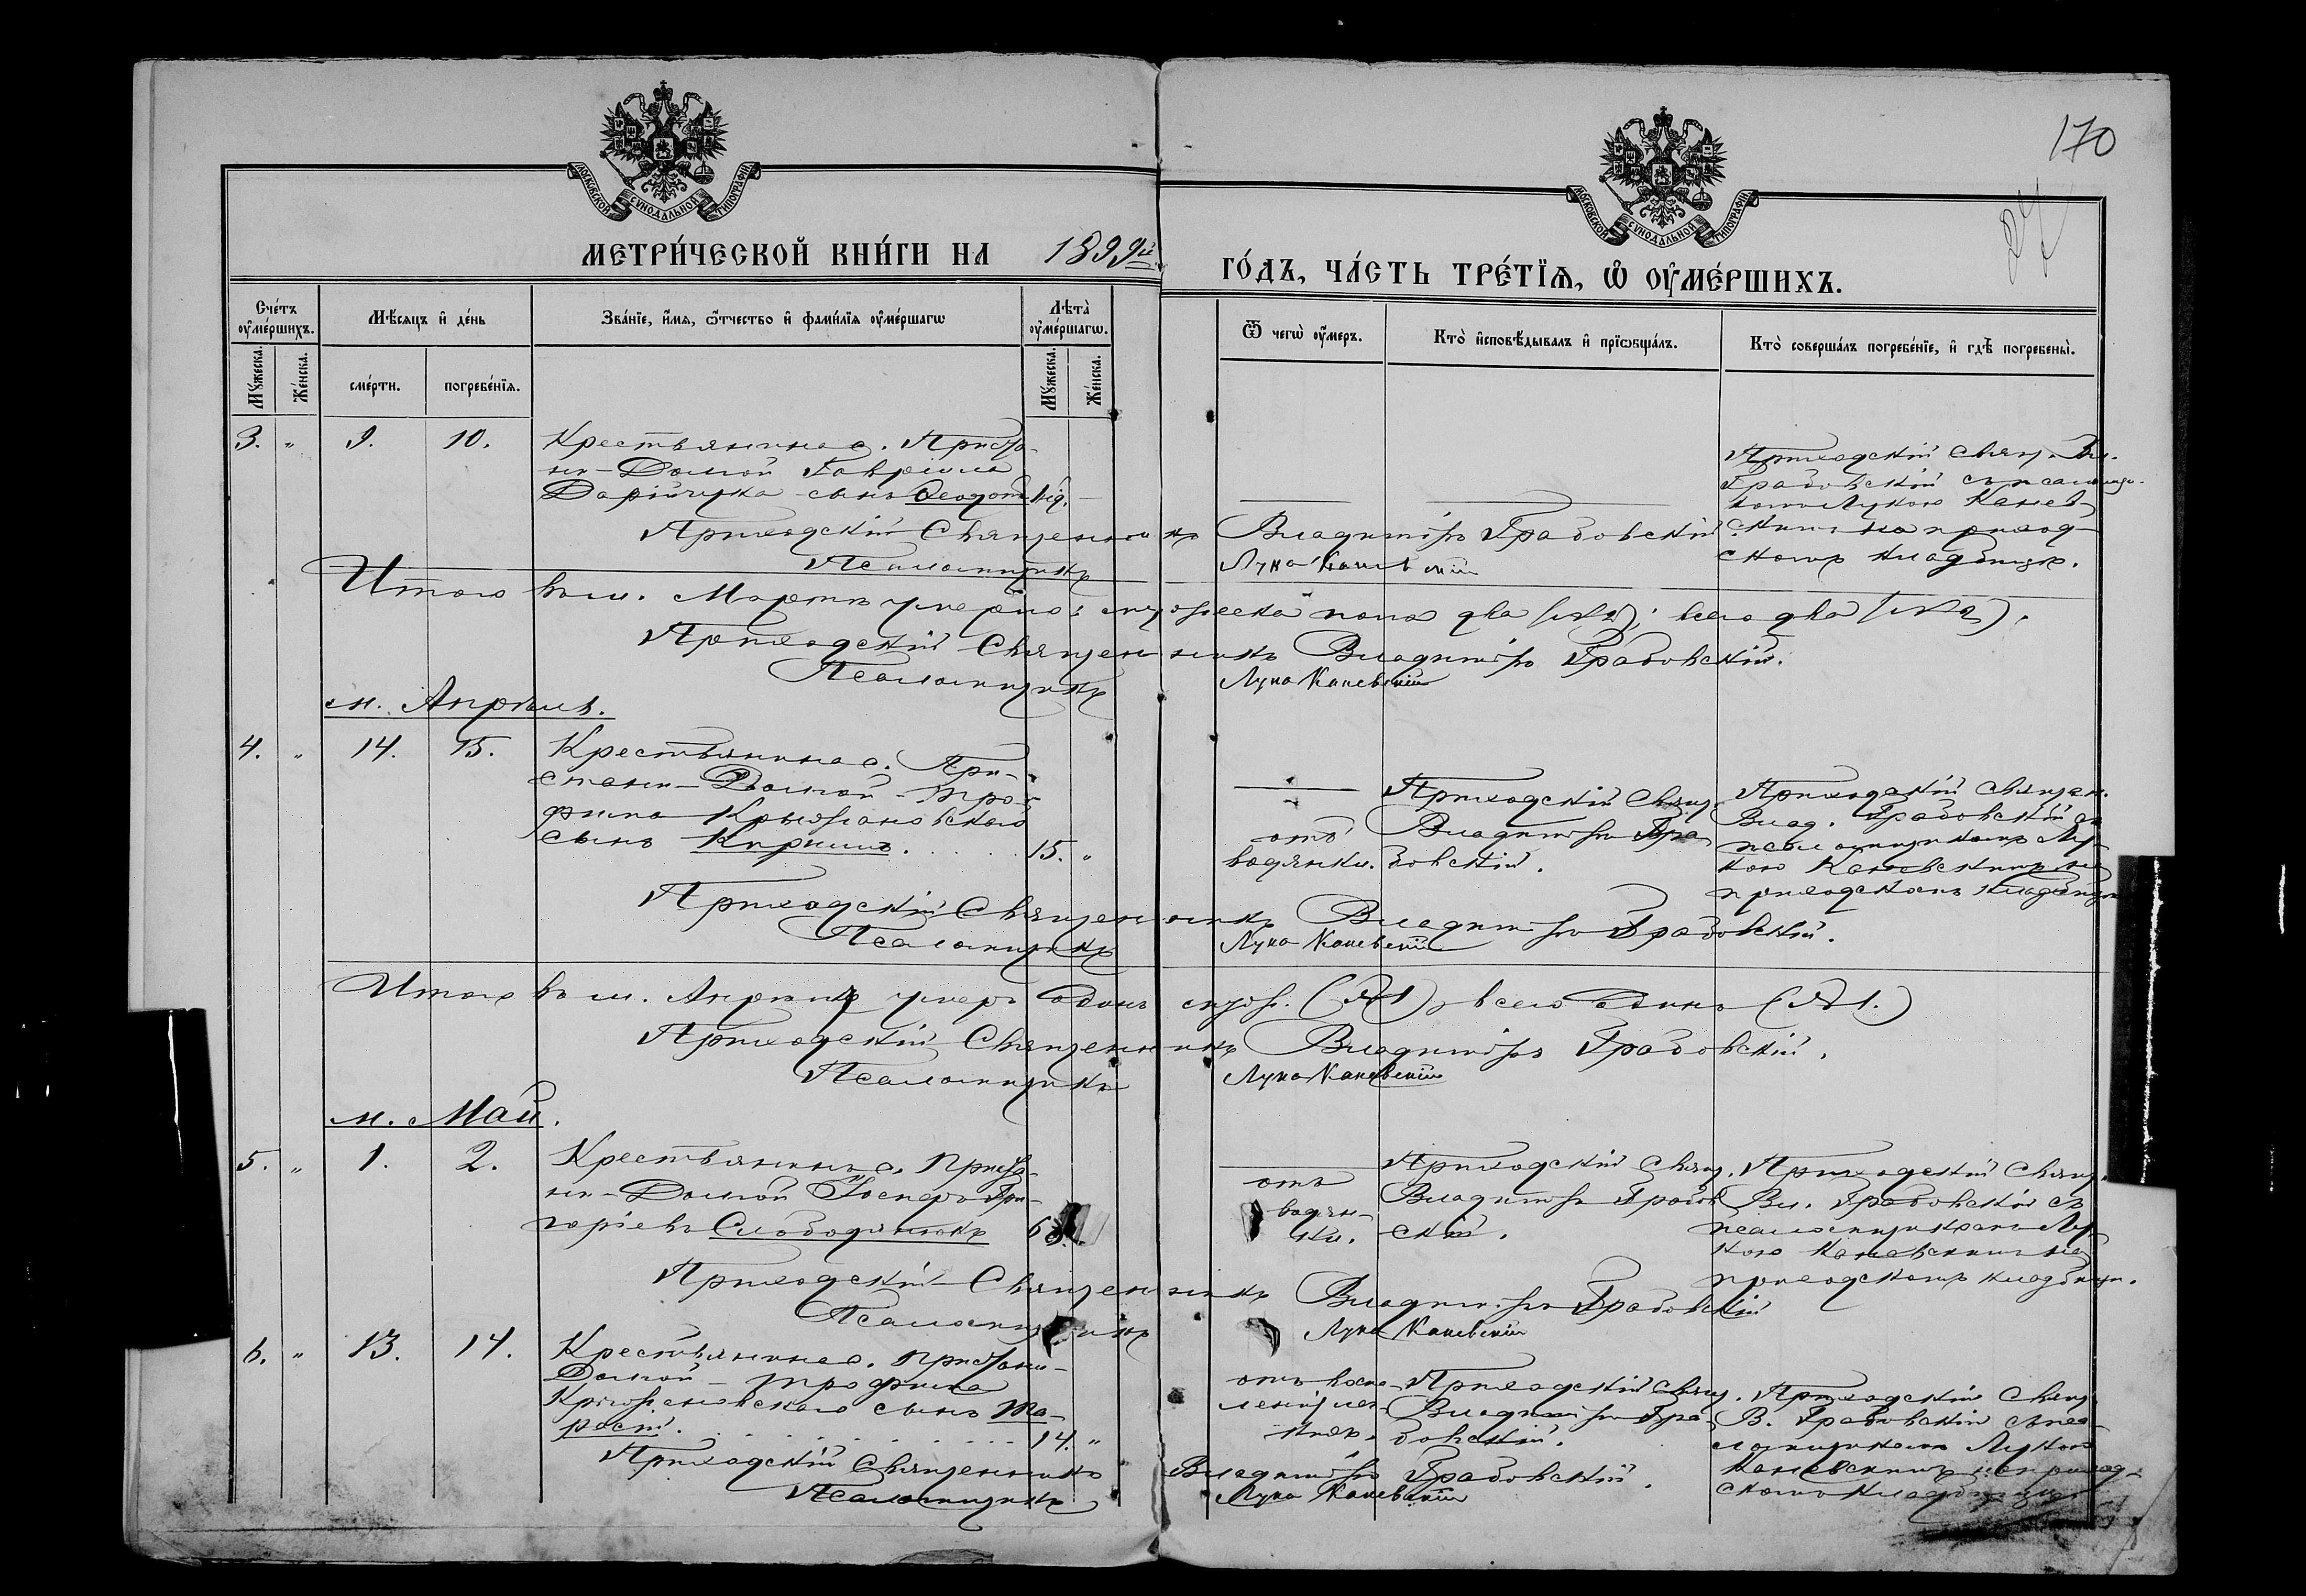 170
МОСКОВСКОЙ СѴНОДАЛЬНОЙ ТИПОГРАФІИ
МОСКОВСКОЙ СѴНОДАЛЬНОЙ ТИПОГРАФІИ
МЕТРИ́ЧЕСКОЙ КНИ́ГИ НА 1899й
ГО́ДЪ, ЧА́СТЬ ТРЕ́ТІЯ, Ѽ ОУ҆МЕ́РШИХЪ.
Сче́тъ оу҆ме́ршихъ.
Мꙋ́жеска.
Же́нска.
Мѣ́сяцъ и҆ де́нь
сме́рти.
погребе́нїя.
Зва́нїе, и҆́мя, ѻ҆́тчество и҆ фами́лїя оу҆ме́ршагѡ
Лѣта̀ оу҆ме́ршагѡ.
Мꙋ́жеска.
Же́нска.
Ѿ чегѡ̀ оу҆́меръ.
Кто̀ и҆сповѣ́дывалъ и҆ прїѡбща́лъ.
Кто̀ соверша́лъ погребе́нїе, и҆ гдѣ̀ погребены̀.
3. " 9. 10.
Крестьянина с.
Долгой Гавріила
сынъ Ѳеодотъ
Приходскій Свящ. Вл.
Грабовскій
Лукою Канев-
скимъ на приход-
скомъ кладбищѣ.
Приходскій Священникъ Владиміръ Грабовскій
Псаломщикъ Лука Каневскій
Итого въ м. Мартѣ умерло: мужеска пола два (№2); всего два (№2).
Приходскій Священникъ Владиміръ Грабовскій.
Псаломщикъ Лука Каневскій
м. Апрѣль.
4. " 14. 15.
Крестьянина с. При-
стани-Долгой Тро-
фима Крыжановскаго
сынъ Кириллъ. 15. "
отъ
водянки.
Приходскій Свящ.
Владиміръ Гра-
бовскій.
Приходскій Священ.
Влад. Грабовскій съ
псаломщикомъ Лу-
кою Каневскимъ на
приходскомъ кладбищѣ
Приходскій Священникъ Владиміръ Грабовскій.
Псаломщикъ Лука Каневскій
Итого въ м. Апрѣлѣ умеръ одинъ муж. (№1), всего одинъ (№1.)
Приходскій Священникъ Владиміръ Грабовскій.
Псаломщикъ Лука Каневскій
м. Май.
5. " 1. 2.
Долгой Гри-
горіевъ Слободянюкъ
отъ
водян-
ки.
Приходскій Свящ.
Владиміръ Грабов-
скій.
Приходскій Свящ.
Вл. Грабовскій съ
псаломщикомъ Лу-
кою Каневскимъ на
приходскомъ кладбищѣ.
Приходскій Священникъ Владиміръ Грабовскій
Псаломщикъ Лука Каневскій
6. " 13. 14.
Крестьянина с.
Долгой Трофима
сынъ Та-
расій. 14. "
Приходскій Свящ.
Владиміръ Гра-
бовскій.
Приходскій Свящ.
В. Грабовскій съ пса-
ломщикомъ Лукою
Каневскимъ на приход-
скомъ кладбищѣ
Приходскій Священникъ Владиміръ Грабовскій.
Псаломщикъ Лука Каневскій